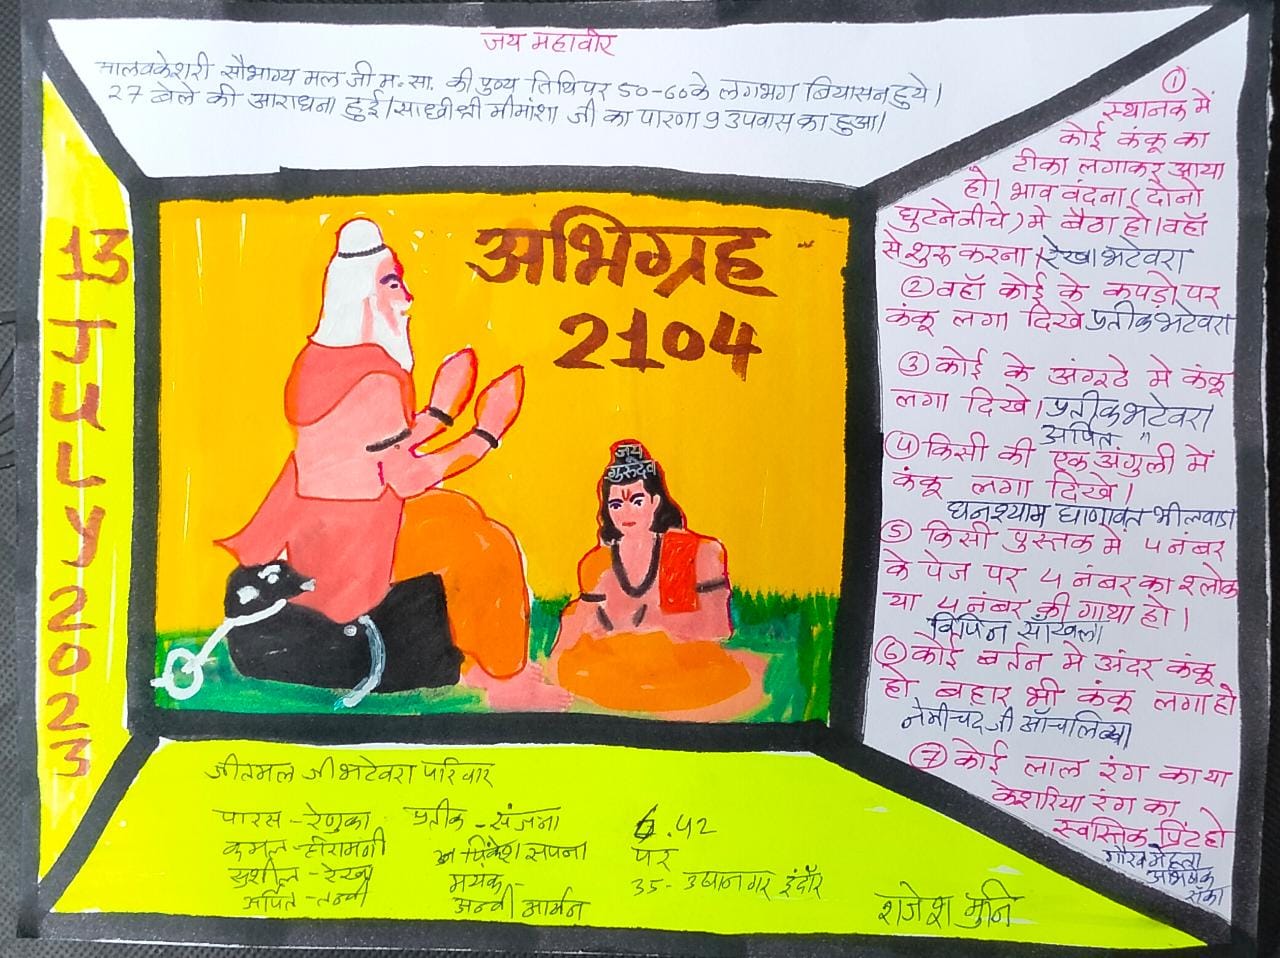 जय महावीर
मालवकेशरी सौभाग्य मल जी म. सा. की पुण्य तिथि पर 50-60 के लगभग बियासन हुये।
27 बेले की आराधना हुई। साध्वी श्री मीमांशा जी का पारणा 9 उपवास का हुआ।
13 JULY 2023
अभिग्रह
2104
जय
गुरुदेव
①
स्थानक में
कोई कंकू का
टीका लगाकर आया
हो। भाव वंदना (दोनो
घुटने नीचे) मे बैठा हो। वहाँ
से शुरू करना रेखा भटेवरा
② वहाँ कोई के कपड़ो पर
कंकू लगा दिखे प्रतीक भटेवरा
③ कोई के अंगूठे मे कंकू
लगा दिखे। प्रतीक भटेवरा
अर्पित "
④ किसी की एक अंगुली में
कंकू लगा दिखे।
घनश्याम घाणावत भीलवाडा
⑤ किसी पुस्तक में 4 नंबर
के पेज पर 4 नंबर का श्लोक
या 4 नंबर की गाथा हो।
विपिन साँखला
⑥ कोई बर्तन मे अंदर कंकू
हो बहार भी कंकू लगा हो
नेमीचंद जी आँचलिया
⑦ कोई लाल रंग का या
केशरिया रंग का
स्वस्तिक प्रिंट हो
गौरव मेहता
अभिषेक
राँका
जीतमल जी भटेवरा परिवार
पारस - रेणुका प्रतीक - संजना
कमल - हीरामणी पिंकेश सपना
सुशील - रेखा मयंक -
अर्पित - तन्वी अन्वी आर्मन
6.42
पर
35- उषानगर इंदौर
राजेश मुनि